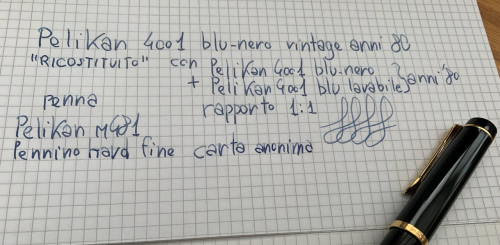 Pelikan 4001 blu-nero vintage anni 80
"RICOSTITUITO" con Pelikan 4001 blu-nero
+ Pelikan 4001 blu lavabile } anni '80
penna rapporto 1:1
Pelikan M481
Pennino hard fine carta anonima